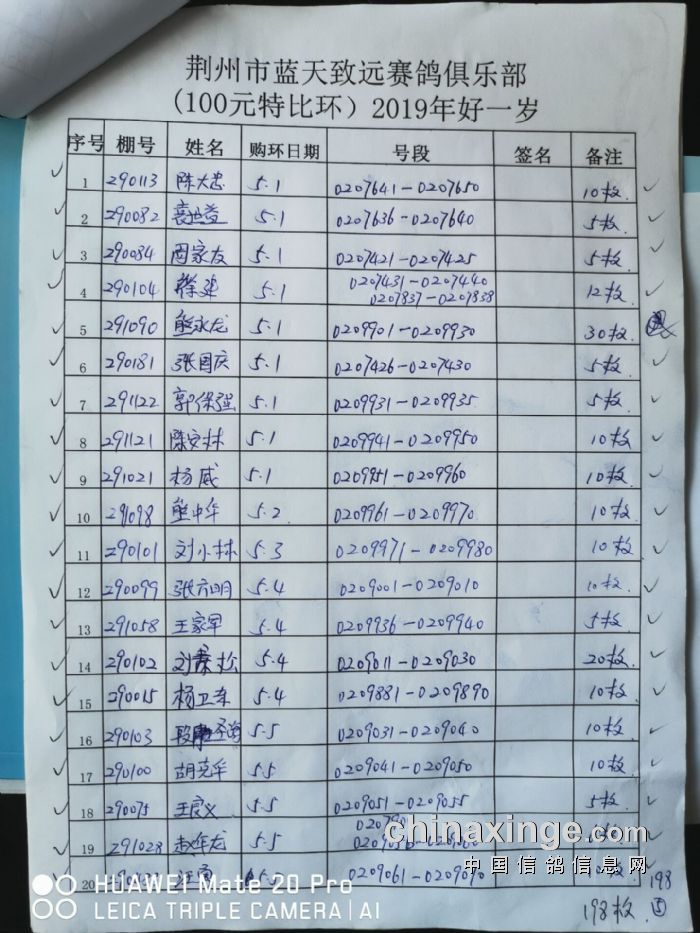 荆州市蓝天致远赛鸽俱乐部
(100元特比环) 2019年好一岁
序号 棚号 姓名 购环日期 号段 签名 备注
1 290113 陈大忠 5.1 0207641-0207650 10枚
2 290082 5.1 0207636-0207640 5枚
3 290084 周家友 5.1 0207421-0207425 5枚
4 290104 徐建 5.1 0207431-0207440 0207837-0207838 12枚
5 291090 熊永龙 5.1 0209901-0209930 30枚
6 290181 张国庆 5.1 0207426-0207430 5枚
7 291122 郭保强 5.1 0209931-0209935 5枚
8 291121 陈安林 5.1 0209941-0209950 10枚
9 291021 杨威 5.1 0209951-0209960 10枚
10 291098 熊中华 5.2 0209961-0209970 10枚
11 290101 刘小林 5.3 0209971-0209980 10枚
12 290099 张六明 5.4 0209001-0209010 10枚
13 291058 王家军 5.4 0209936-0209940 5枚
14 290102 刘 松 5.4 0209011-0209030 20枚
15 290015 杨卫东 5.4 0209881-0209890 10枚
16 290103 5.5 0209031-0209040 10枚
17 290100 胡克华 5.5 0209041-0209050 10枚
18 290075 王良义 5.5 0209051-0209055 5枚
19 291028 赵年龙 5.5
20 0209061-0209070 10枚
198枚
198
⑤
chinaxinge.com
中国信鸽信息网
HUAWEI Mate 20 Pro
LEICA TRIPLE CAMERA | AI